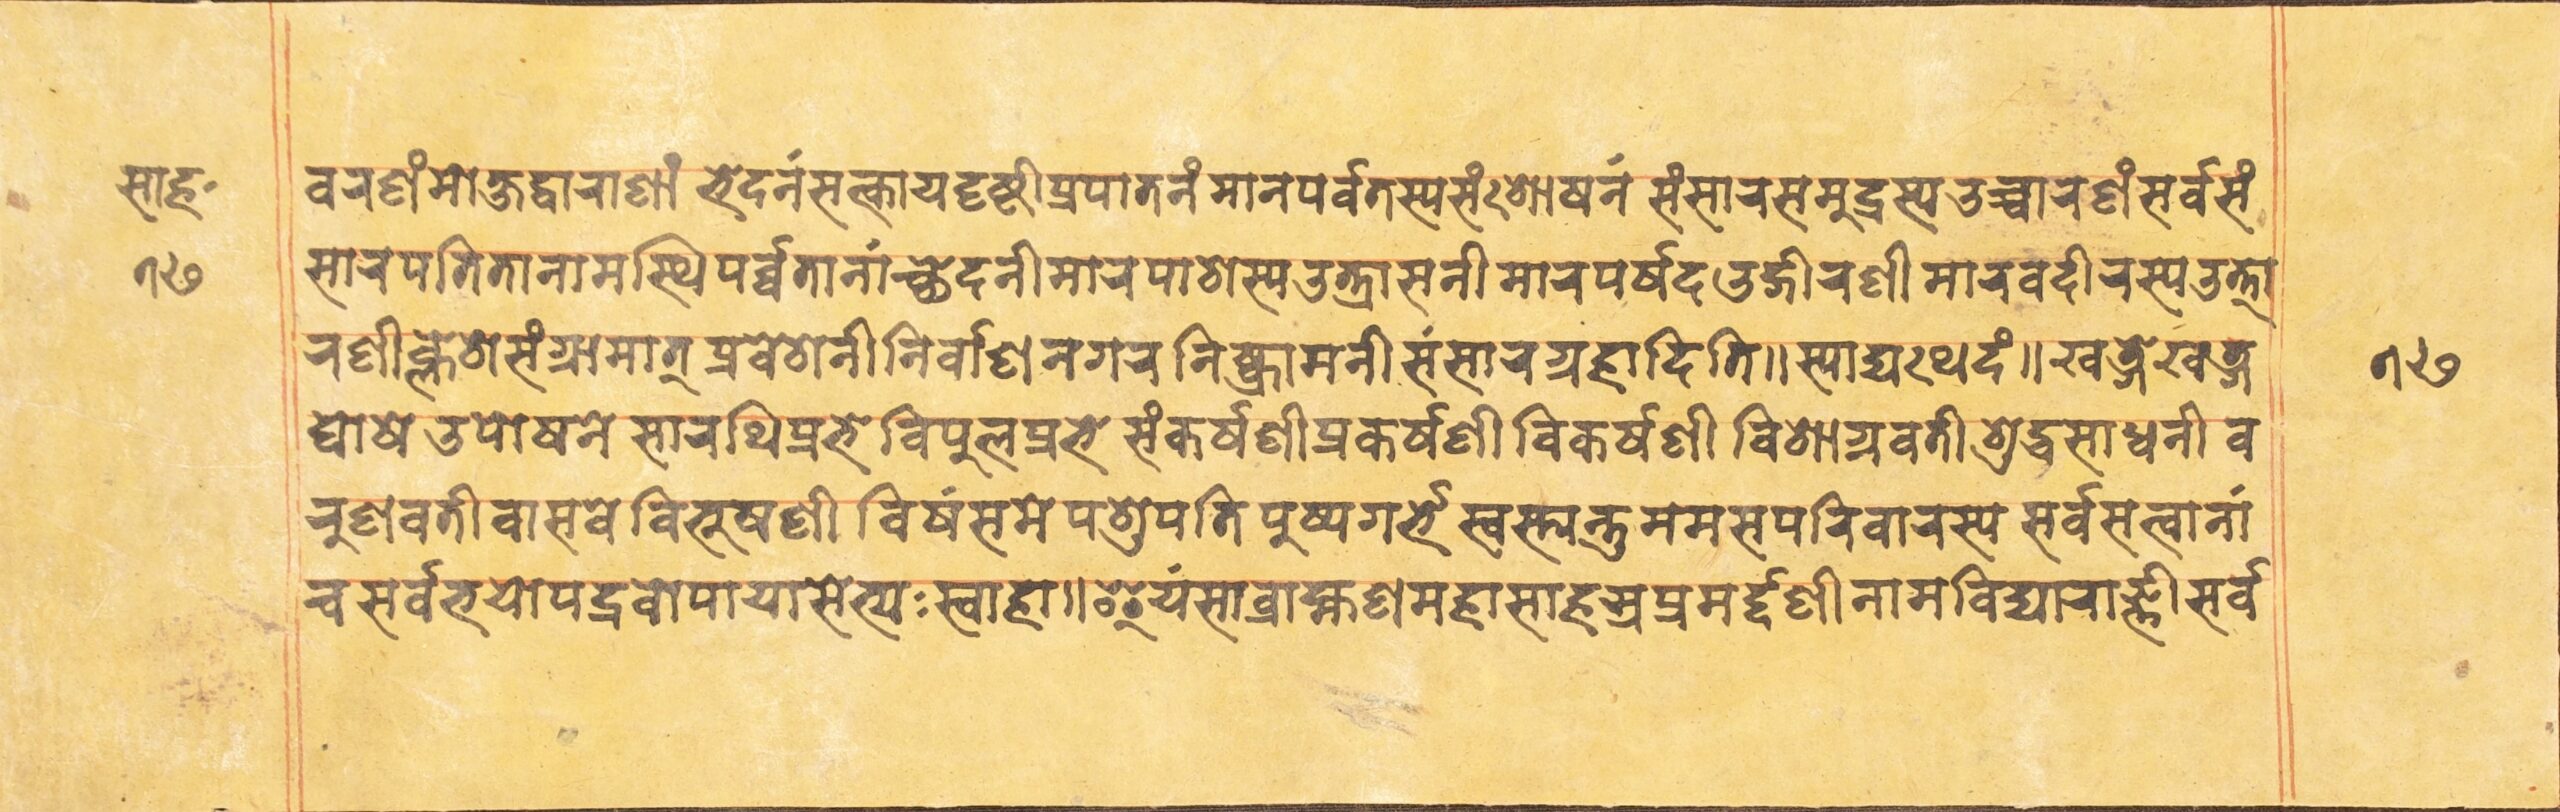 साह॰
१७
वरणंमोक्षद्वाराणां भेदनंसत्कायदृष्टीप्रपातनंमानपर्वतस्यसंःशोषनं संसारसमुद्रस्यउच्चारणंसर्वसं
सारपतितानामस्थिपर्व्वतानांच्छेदनीमारपाशोस्यउत्त्रासनीमारपर्षदउद्गीरणीमारवदीरस्यउत्ता
रणीक्लेशोसंग्रामात्प्रवेशोनीनिर्वाणनगरनिष्क्रामनीसंसारग्रहादिति॥स्याद्यःथदं॥खड्गेखड्ग
घोषेउषोषने सारथिप्रभे विपुलप्रभे संकर्षणीप्रकर्षणी विकर्षणी विशोग्रवतीशुद्धसाध्वनी व
रुणवतीवासवे विभूषणी विषंसमे पशुपति पुष्पगर्भे स्वस्त्यन्तुममसपरिवारस्य सर्वसत्वानां
चसर्वभयोपद्रवोपायासेभ्यःस्वाहा॥इयंसाब्राह्मणमहासाहस्रप्रमर्द्दणीनामविद्याराज्ञीसर्व
१७